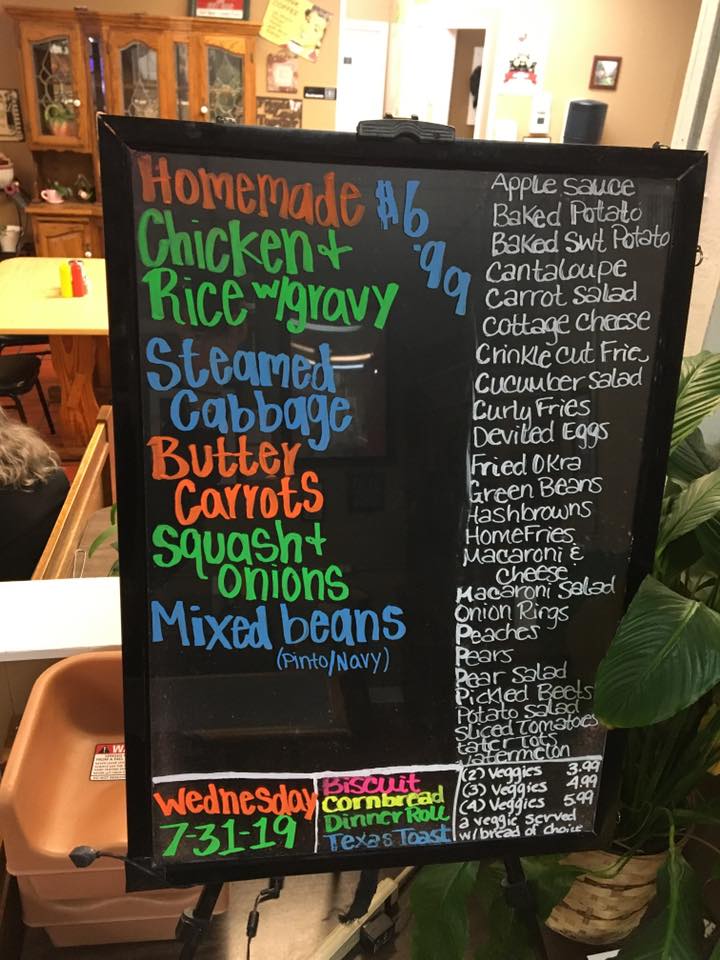 Homemade $6.99
Chicken +
Rice w/gravy
Steamed
Cabbage
Butter
Carrots
Squash +
onions
Mixed beans
(Pinto/Navy)
Apple sauce
Baked Potato
Baked Swt Potato
Cantaloupe
Carrot Salad
Cottage Cheese
Crinkle Cut Fries
Cucumber Salad
Curly Fries
Deviled Eggs
Fried Okra
Green Beans
Hashbrowns
HomeFries
Macaroni &
Cheese
Macaroni Salad
Onion Rings
Peaches
Pears
Pear Salad
Pickled Beets
Potato Salad
Sliced Tomatoes
Tater Tots
Watermelon
Wednesday
7-31-19
Biscuit
Cornbread
Dinner Roll
Texas Toast
(2) Veggies 3.99
(3) Veggies 4.99
(4) Veggies 5.99
a veggie served
w/bread of choice